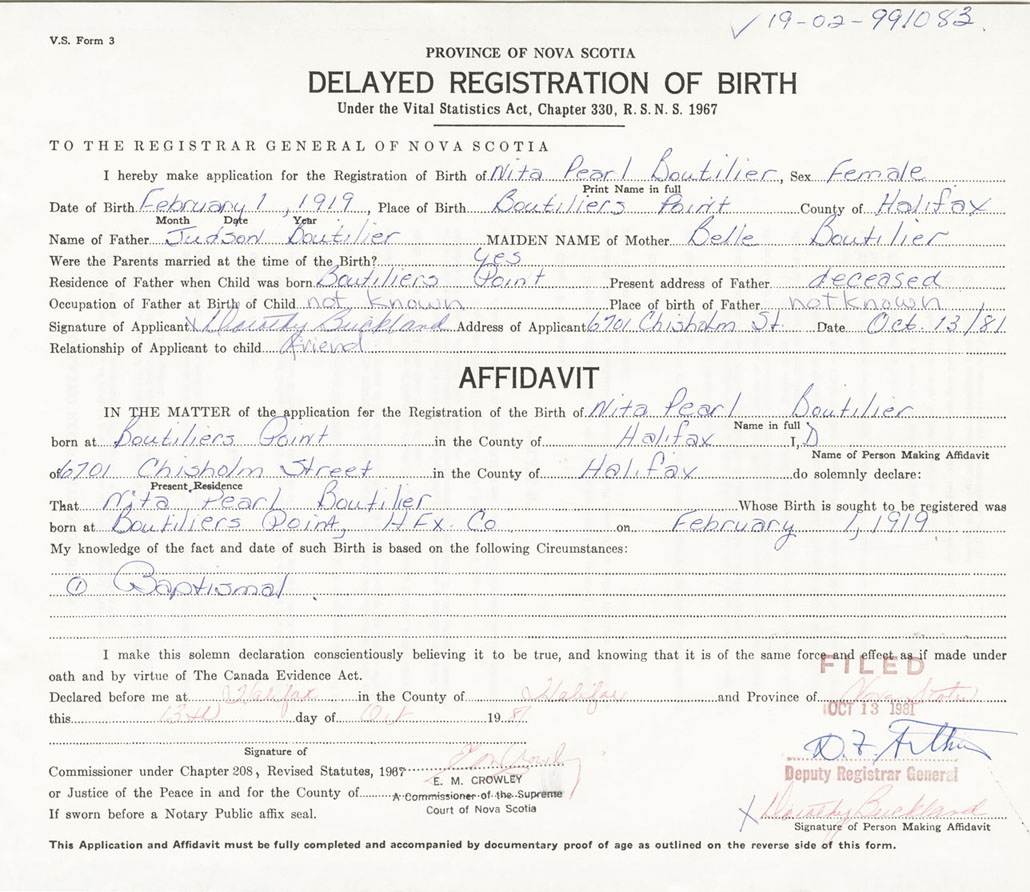 ✓ 19-02-991083.
V.S. Form 3
PROVINCE OF NOVA SCOTIA
DELAYED REGISTRATION OF BIRTH
Under the Vital Statistics Act, Chapter 330, R.S.N.S. 1967
TO THE REGISTRAR GENERAL OF NOVA SCOTIA
I hereby make application for the Registration of Birth of Nita Pearl Boutilier, Sex Female
Print Name in full
Date of Birth February 1, 1919, Place of Birth Boutiliers Point County of Halifax
Month Date Year
Name of Father Judson Boutilier MAIDEN NAME of Mother Belle Boutilier
Were the Parents married at the time of the Birth? Yes
Residence of Father when Child was born Boutiliers Point Present address of Father deceased
Occupation of Father at Birth of Child not known Place of birth of Father not known
Signature of Applicant X Dorothy Buckland Address of Applicant 6701 Chisholm St. Date Oct. 13/81
Relationship of Applicant to child friend
AFFIDAVIT
IN THE MATTER of the application for the Registration of the Birth of Nita Pearl Boutilier
Name in full
born at Boutiliers Point in the County of Halifax I, D
Name of Person Making Affidavit
of 6701 Chisholm Street in the County of Halifax do solemnly declare:
Present Residence
That Nita Pearl Boutilier Whose Birth is sought to be registered was
born at Boutiliers Point, HFx. Co on February 1, 1919.
My knowledge of the fact and date of such Birth is based on the following Circumstances:
① Baptismal.
I make this solemn declaration conscientiously believing it to be true, and knowing that it is of the same force and effect as if made under
FILED
oath and by virtue of The Canada Evidence Act.
Declared before me at Halifax in the County of Halifax and Province of Nova Scotia
OCT 13 1981
this 13th day of Oct 1981
D.F.
Signature of
Commissioner under Chapter 208, Revised Statutes, 1967
Deputy Registrar General
E. M. CROWLEY
or Justice of the Peace in and for the County of
A Commissioner of the Supreme
Court of Nova Scotia
If sworn before a Notary Public affix seal.
X Dorothy Buckland
Signature of Person Making Affidavit
This Application and Affidavit must be fully completed and accompanied by documentary proof of age as outlined on the reverse side of this form.